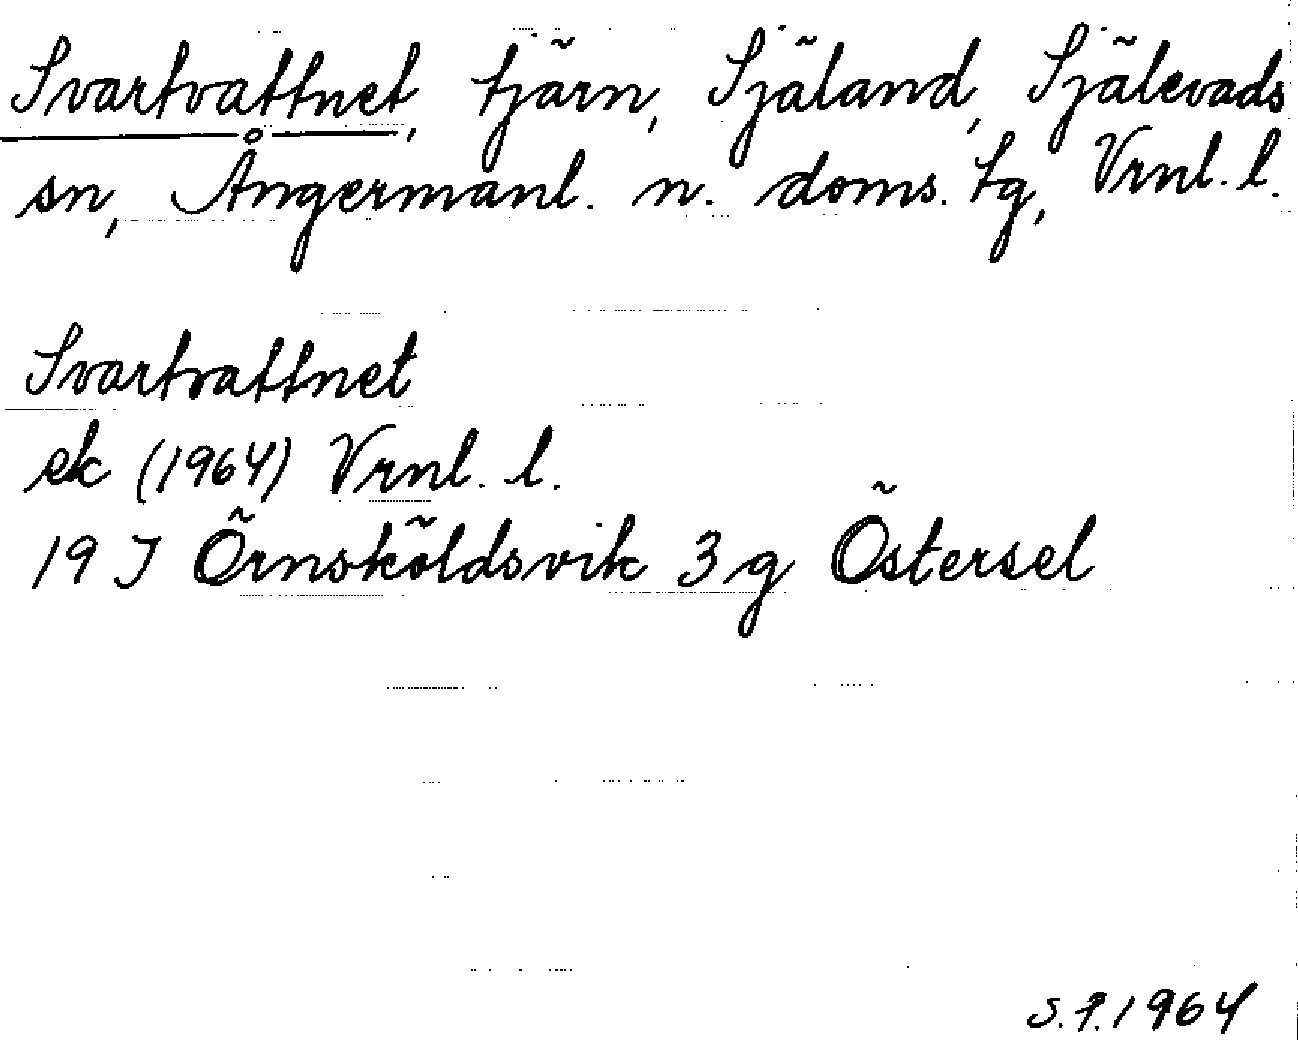 Svartvattnet, tjärn, Själand, Själevads
sn, Ångermanl. n. doms. tg, Vrnl. l.
Svartvattnet
ek (1964) Vrnl. l.
19 J Örnsköldsvik 3 g Östersel
S.P. 1964